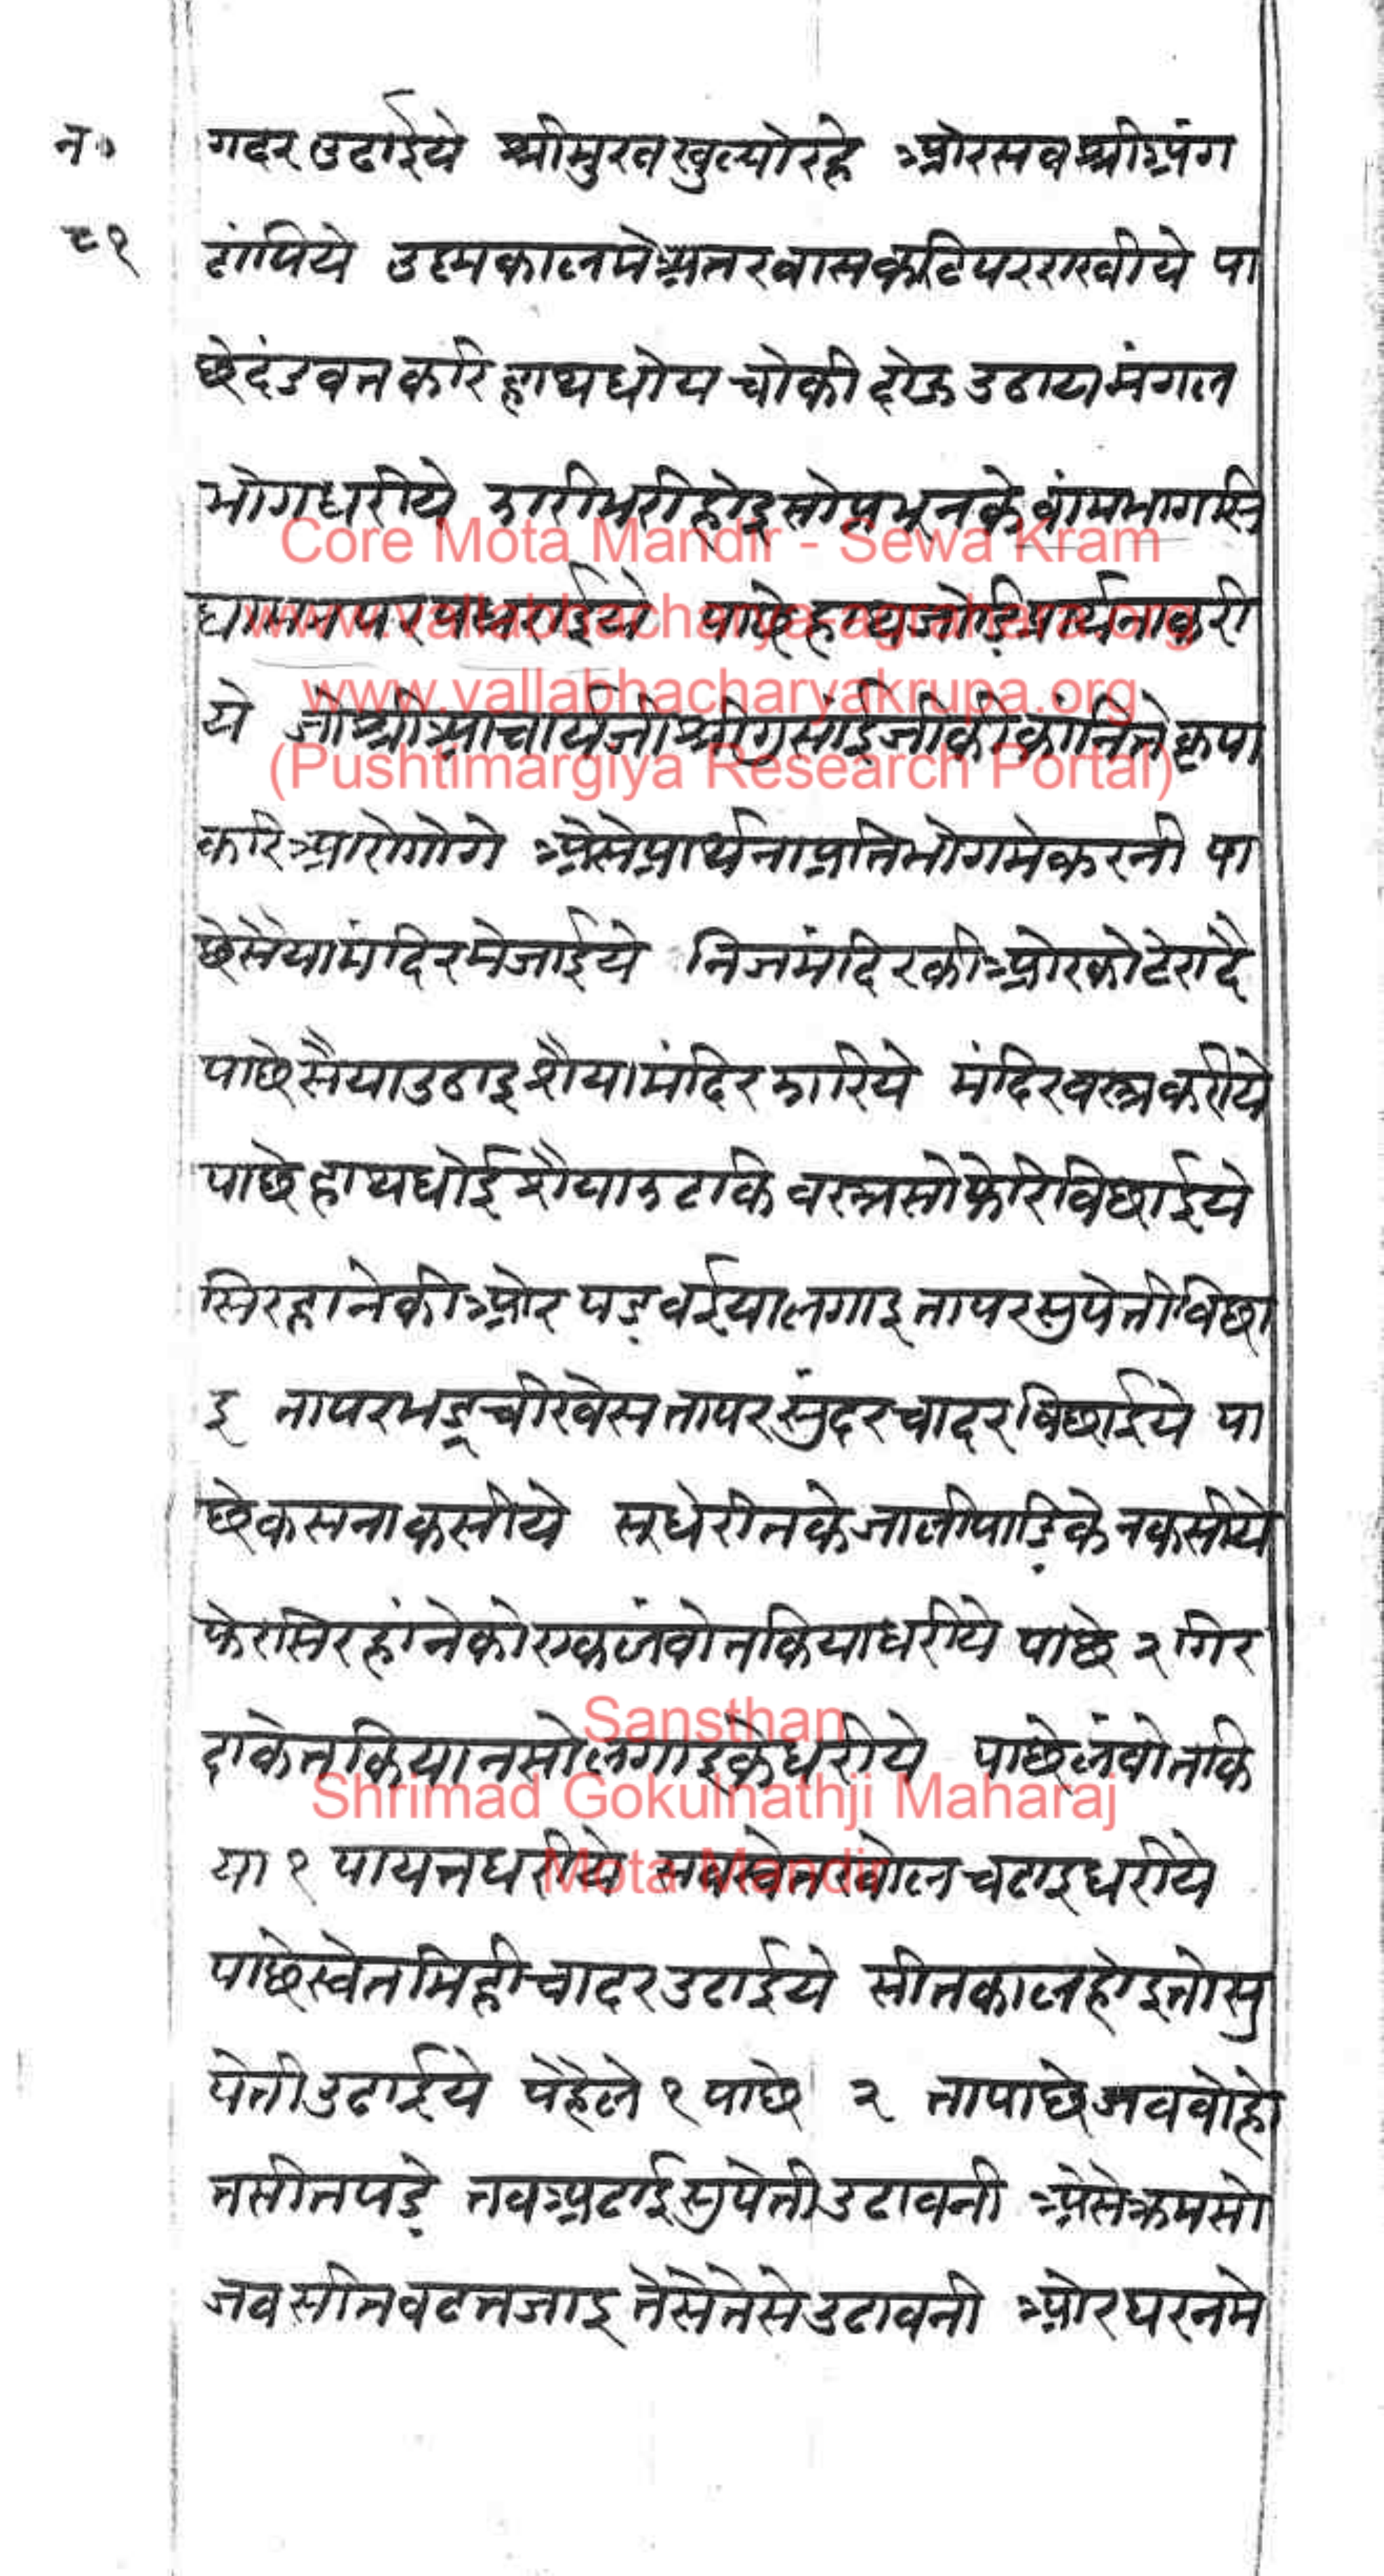 न॰ गदर उढाईये श्रीमुख खुल्योरहे ओरसव श्रीअंग
८१ ढांपिये उष्मकालमे अतरवासकटिपरराखीये पा
छेदंडवतकरि हाथधोय चोकी दोऊ उठाय मंगल
भोगधरीये झारीभरीहोइसोप्रभूनके वांमभागसि
घासनपरपधराईये पाछे हाथजोडि प्रार्थनाकरी
ये जोश्रीआचार्यजीश्रीगुसांईजीकीकांनितेकृपा
करिआरोगोगे अैसेप्रार्थनाप्रतिभोगमेकरनी पा
छेसैयामंदिरमेजाईये निजमंदिरकीओरकोटेरादै
पाछेसैयाउठाइशैयामंदिरझारिये मंदिरवस्त्रकरीये
पाछेहाथधोईशैयाझटकि वस्त्रसोफेरिविछाईये
सिरहानेकीओर पडवईयालगाइतापरसुपेतीविछा
इ तापरमडचीखेसतापरसुंदरचादरविछाईये पा
छेकसनाकसीये सूधेरीतकेजालीपाडिकेनकसीये
फेरसिरहांनेकोएकलंवोतकियाधरीये पाछे २ गिर
दाकेतकियानसोलगाइकेधरीये पाछेलंवोतकि
या १ पायतधरीये सवस्वेतखोलचढाइधरीये
पाछेस्वेतमिहीचादरउढाईये सीतकालहोइतोसु
पेतीउढाईये पेहेले १ पाछे २ तापाछेजववोहो
तसीतपडे तवअढाईसुपेतीउढावनी अैसेक्रमसो
जवसीतवढतजाइतेसेतेसेउढावनी ओरघरनमे
Core Mota Mandir - Sewa Kram
www.vallabhacharya-agrahara.org
www.vallabhacharyakrupa.org
(Pushtimargiya Research Portal)
Sansthan
Shrimad Gokulnathji Maharaj
Mota Mandir